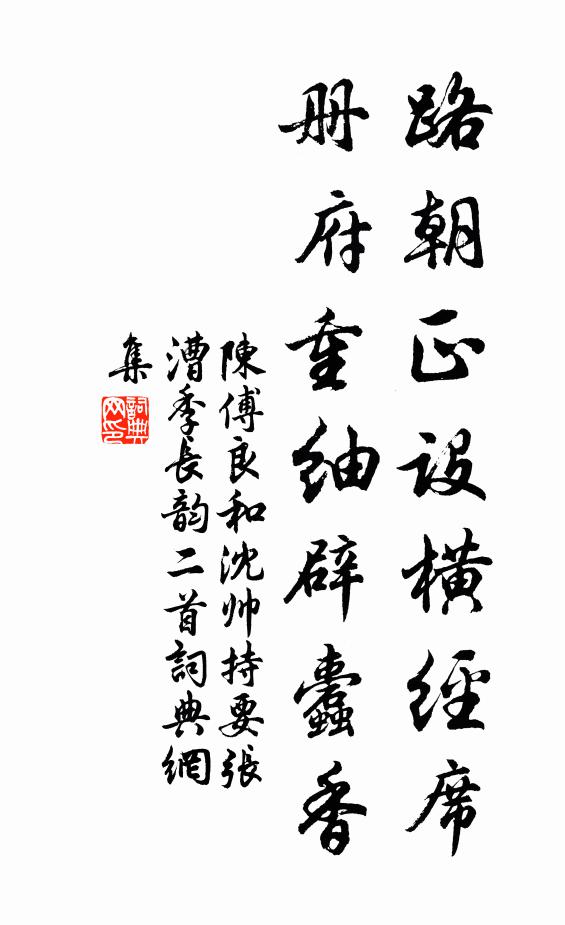 路朝正設橫經席
册府重紬辟蠹香
陳傅良和沈帅持要張
漕季長韵二首詞典網
集
詞典
网印